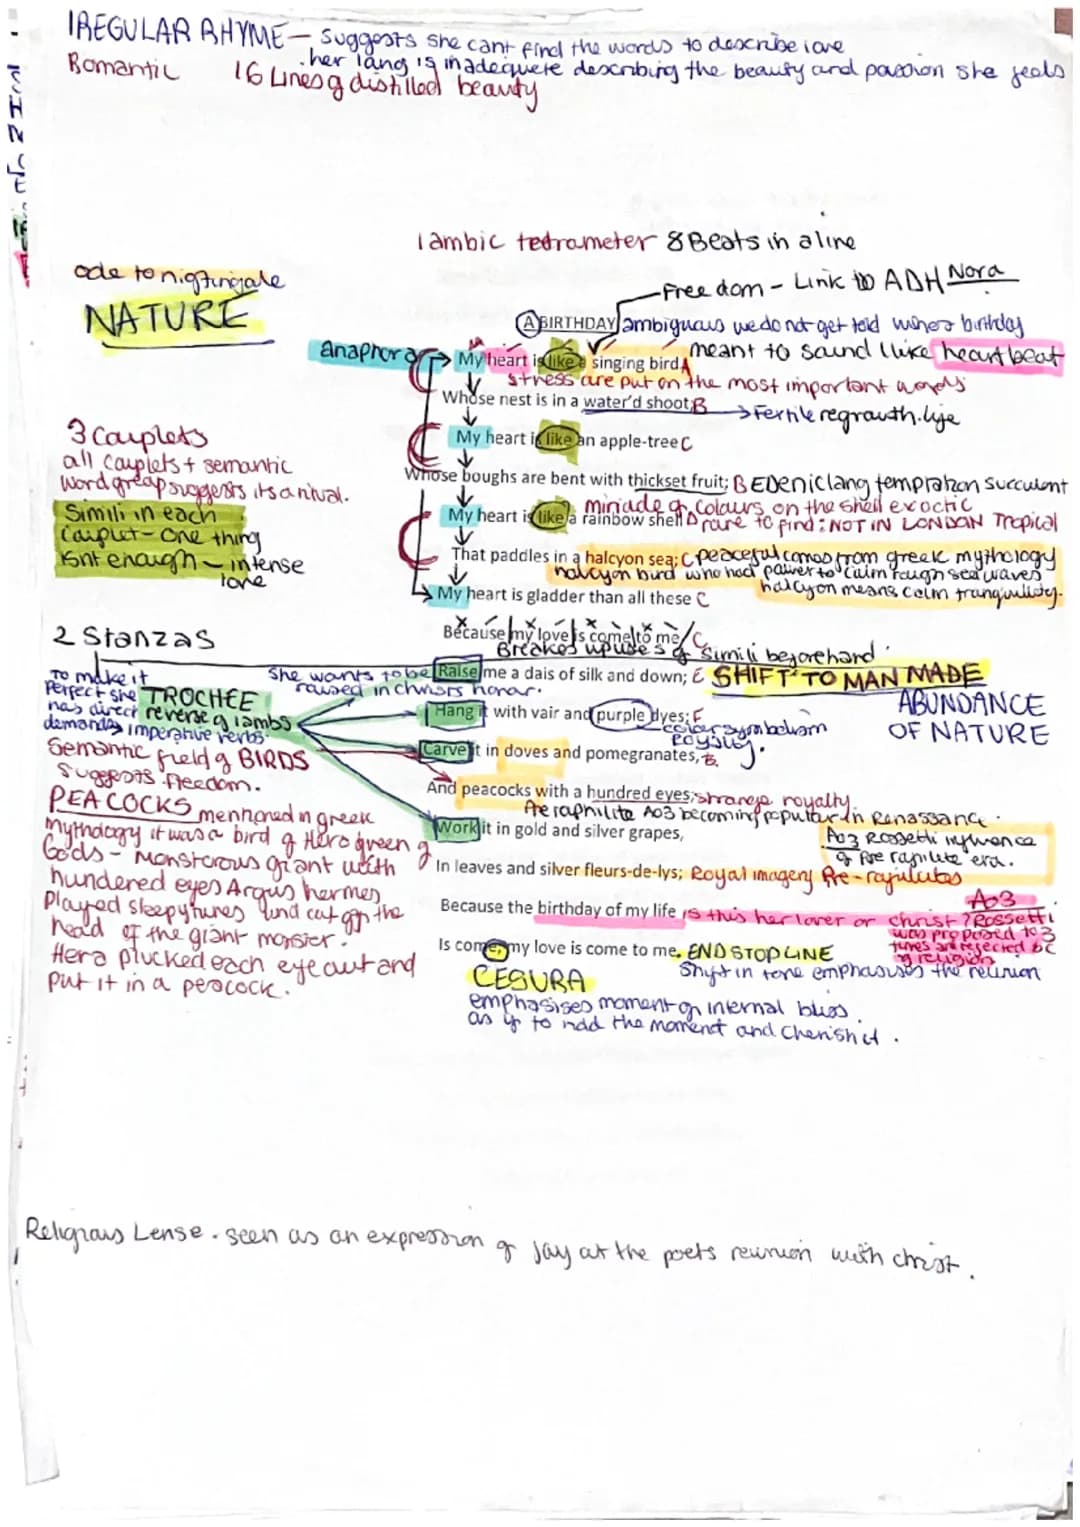 IREGULAR RHYME - suggests she cant find the words to describe love
. her lang is inadequete describing the beauty and passion she feels
Romantic 16 Lines of distilled beauty
Iambic tetrameter 8 Beats in a line
ode to nigtingale
NATURE
Freedom - Link to ADH Nora
A BIRTHDAY ambiguous we do not get told whos birthday
meant to sound like heart beat
anaphora
My heart is like a singing bird A
stress are put on the most important words
Whose nest is in a water'd shoot; B → Fertile regrowth. life
My heart is like an apple-tree C
Whose boughs are bent with thickset fruit; B EDENic lang temptation succulent
miriade of colours on the shell exoctic
My heart is like a rainbow shell D rare to find: NOT IN LONDON Tropical
That paddles in a halcyon sea; C peaceful comes from greek mythology
halcyon bird who had power to calm rough sea waves
halcyon means calm tranquility.
My heart is gladder than all these C
Because my love is come to me/ C
Breakes up use of simili beforehand.
3 Couplets
all couplets + semantic
word group suggests its a
Simili in each
couplet - One thing
isnt enough - intense
love
2 Stanzas
To make it
Perfect she
has direct
demands → imperative verbs.
TROCHEE
reverse of iambs
She wants to be
raised in christs honor.
Raise me a dais of silk and down; E SHIFT TO MAN MADE
ABUNDANCE
OF NATURE
Hang it with vair and purple dyes; F
color symbolism
royalty.
Carve it in doves and pomegranates,
And peacocks with a hundred eyes; strange royalty.
Pre raphilite Ao3 becoming popular in Renassance.
Work it in gold and silver grapes,
Ao3 Rossetti inflwence
of Pre rapilute era.
In leaves and silver fleurs-de-lys; Royal imagery Pre-rafulutes
Ao3
Because the birthday of my life is this her lover or christ? Rossetti
was proposed to 3
times and rejected bc
of religion
Is come, my love is come to me. END STOP LINE
Shift in tone emphasises the reunion
CESURA
emphasises moment of internal bliss.
as if to hold the moment and cherish it.
Semantic field of BIRDS
Suggests freedom.
PEACOCKS mentioned in greek
mythology it was a bird of Hera queen of
Gods - Monstorous giant with
hundered eyes Argus hermes
played sleepy tunes and cut off the
head of the giant monster.
Hera plucked each eye out and
put it in a peacock.
Religious Lense. seen as an expression of joy at the poets reunion with christ.